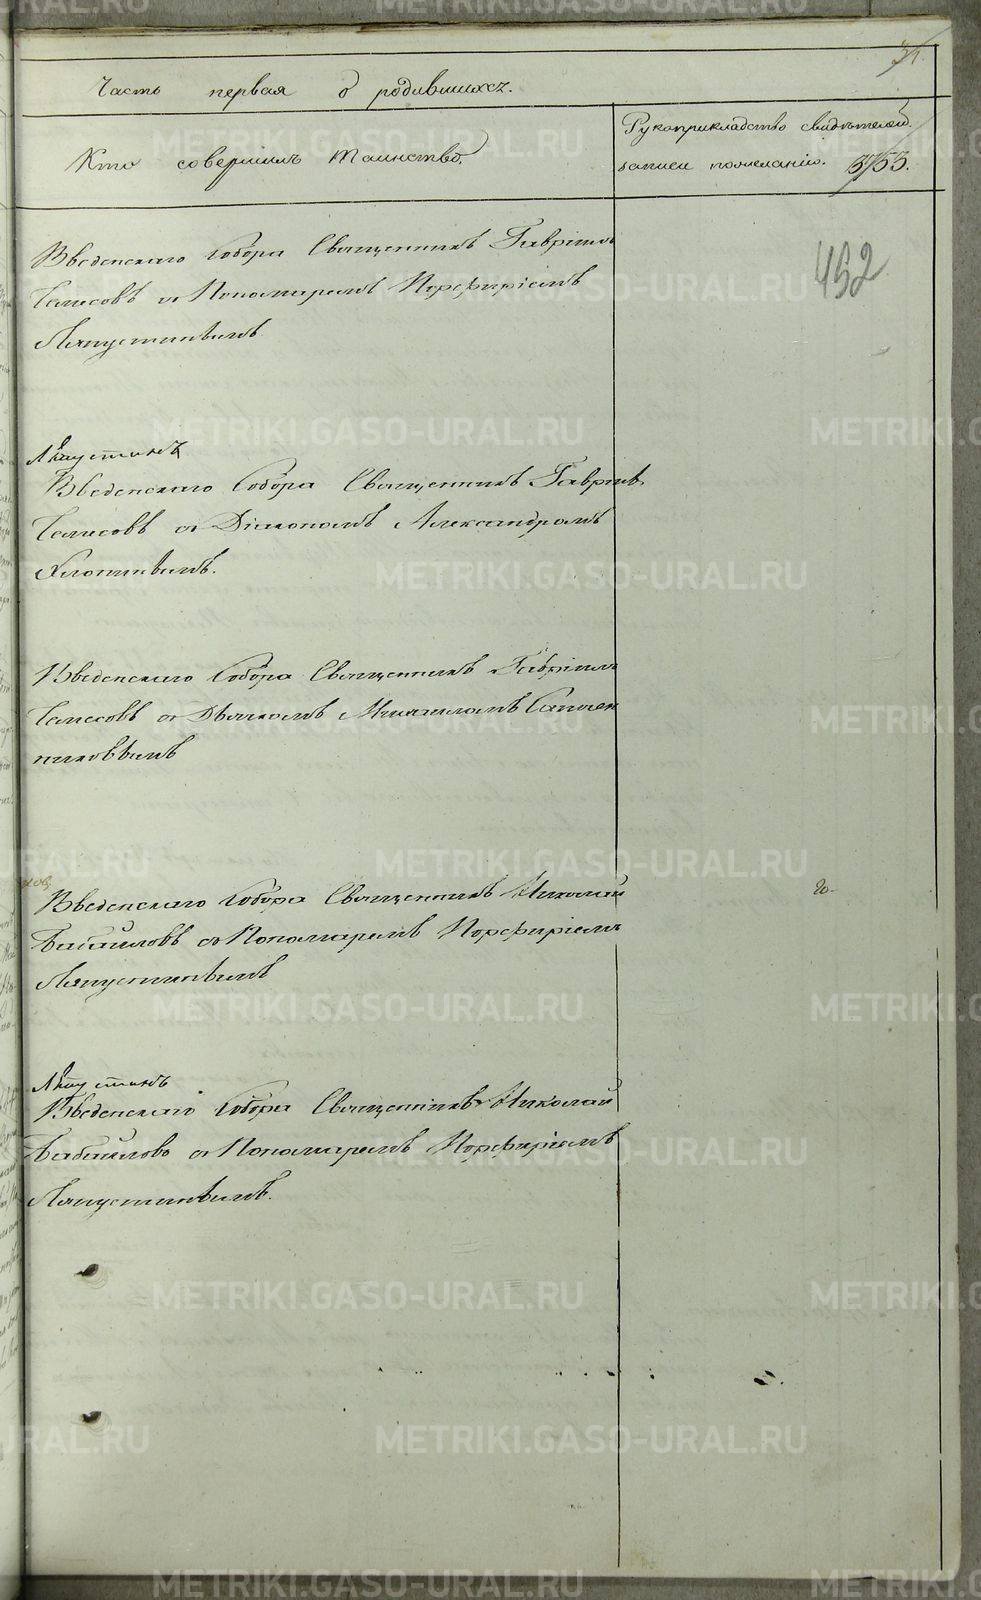 Часть первая о родившихся.
Кто совершилъ таинство.
Рукоприкладство свидѣтелей
записи по желанію.
452
Введенскаго Собора Священникъ Гавріилъ
и Пономаремъ Порфиріемъ
Ляпустинымъ
Введенскаго Собора Священникъ Гавріилъ
и Діакономъ Александромъ
Хлопинымъ.
Введенскаго Собора Священникъ Гавріилъ
и Дьячкомъ Михаиломъ Сапожн
никовымъ
Введенскаго Собора Священникъ Николай
Бабайловъ и Пономаремъ Порфиріемъ
Ляпустинымъ
Введенскаго Собора Священникъ Николай
Бабайловъ и Пономаремъ Порфиріемъ
Ляпустинымъ.
METRIKI.GASO-URAL.RU